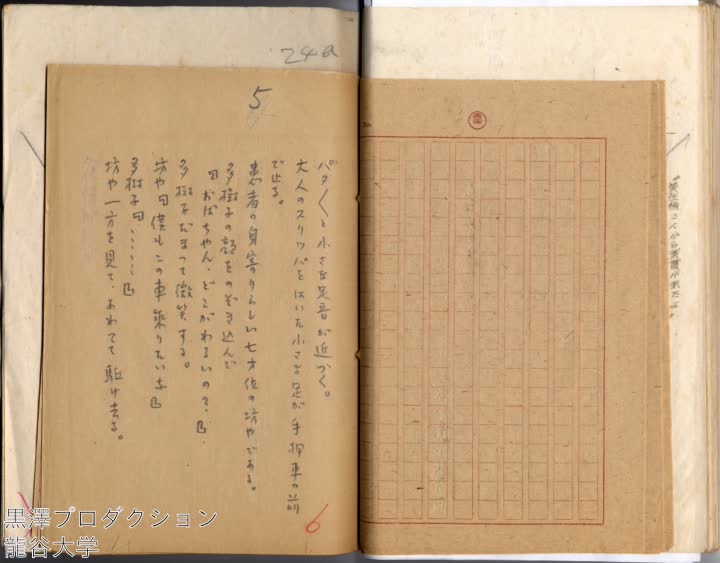 24a
5
パタ〱と小さな足音が近づく。
大人のスリッパをはいた小さな足が手押車の前
で止る。
患者の身寄りらしい七才位の坊やである。
多樹子の顔をのぞき込んで
『おばちゃん、どこがわるいので、』
多樹子だまって微笑する。
坊や『僕もこの車乗りたいな』
多樹子『……』
坊や一方を見て、あわてて駈け去る。
6
No.
黒澤プロダクション
龍谷大学